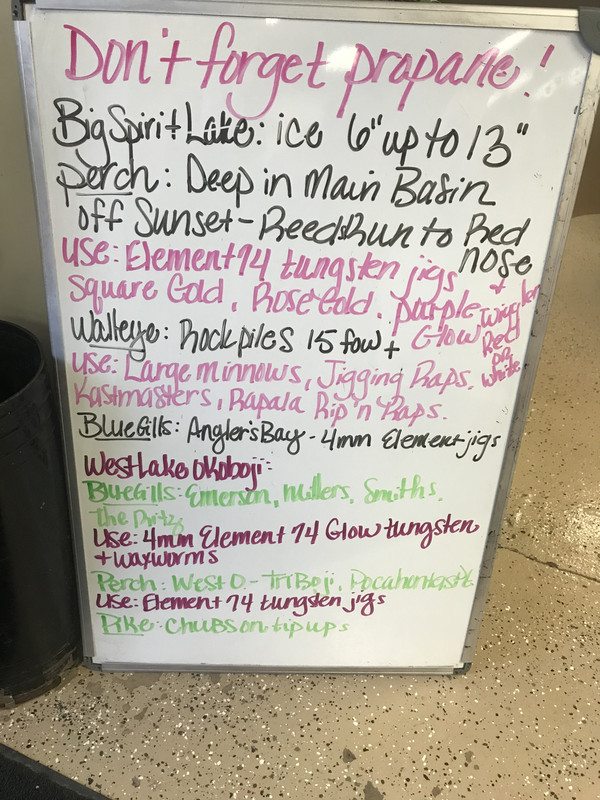 Don't forget propane!
Big Spirit Lake: ice 6" up to 13"
perch: Deep in Main Basin
off Sunset - Reeds Run to Red
nose
Use: Element 74 tungsten jigs +
Square Gold, Rose Gold, purple, Glow
Wiggler
Red
or
White
Walleye: Rockpiles 15 fow +
Use: Large minnows, Jigging Raps,
Kastmasters, Rapala Rip'n Raps.
BlueGills: Angler's Bay - 4mm Element jigs
West Lake Okoboji:
BlueGills: Emerson, Millers, Smiths,
The Dritz
Use: 4mm Element 74 Glow tungsten
+ waxworms
Perch: West O. - Triboji, Pocahontas Pt.
Use: Element 74 tungsten jigs
Pike: Chubs on tip ups